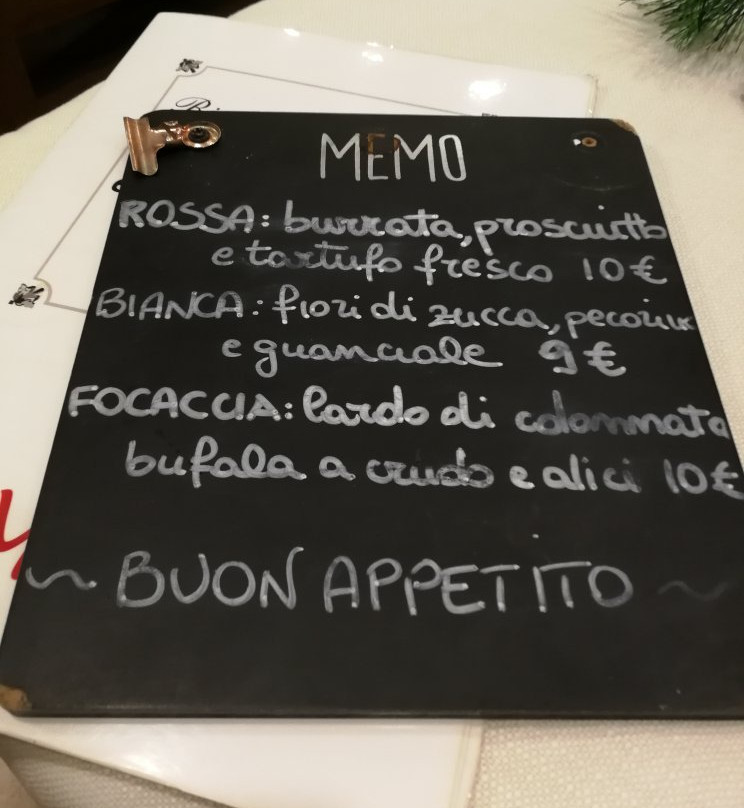 MEMO
ROSSA: burrata, prosciutto
e tartufo fresco 10€
BIANCA: fiori di zucca, pecorino
e guanciale 9€
FOCACCIA: lardo di colonnata
bufala a crudo e alici 10€
~ BUON APPETITO ~